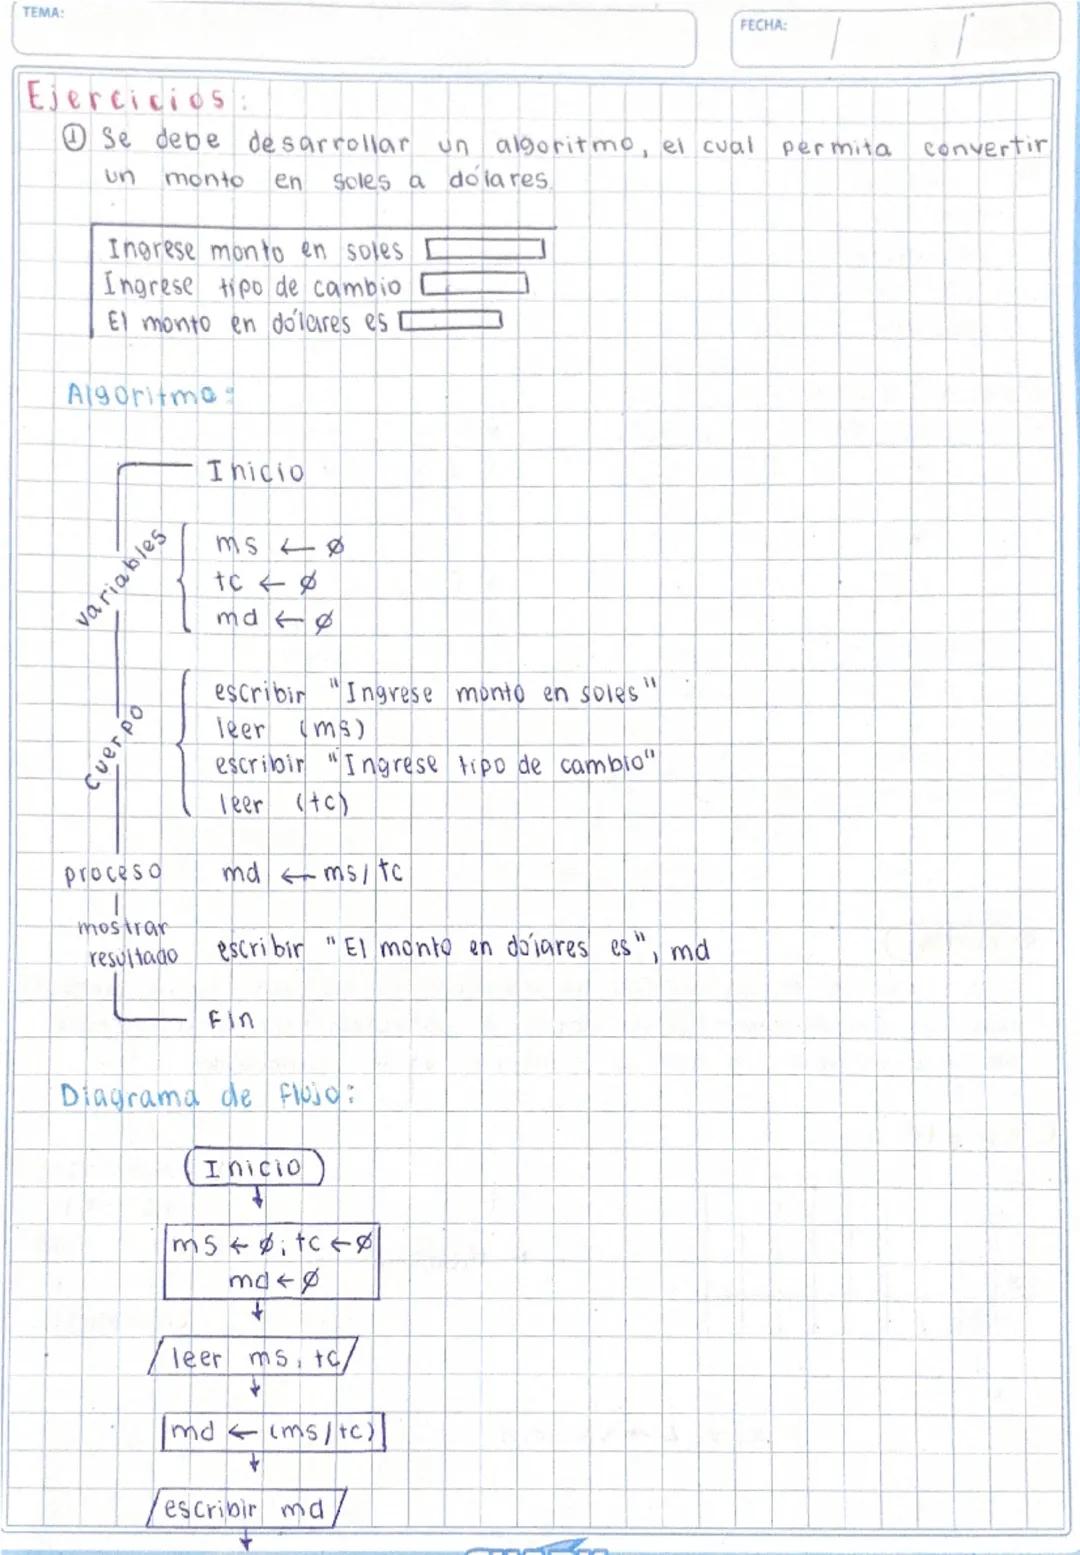 TEMA:
FECHA:
Ejercicios:
① Se debe desarrollar un algoritmo, el cual permita convertir
un monto en soles a dólares.
Ingrese monto en soles
Ingrese tipo de cambio
El monto en dólares es
Algoritmo:
Inicio
variables
ms ← ∅
tc ← ∅
md ← ∅
Cuerpo
escribir "Ingrese monto en soles"
leer (ms)
escribir "Ingrese tipo de cambio"
leer (tc)
proceso md ← ms/tc
mostrar
resultado escribir "El monto en dólares es", md
Fin
Diagrama de flujo:
Inicio
ms ← ∅; tc ← ∅
md ← ∅
leer ms, tc
md ← (ms/tc)
escribir md